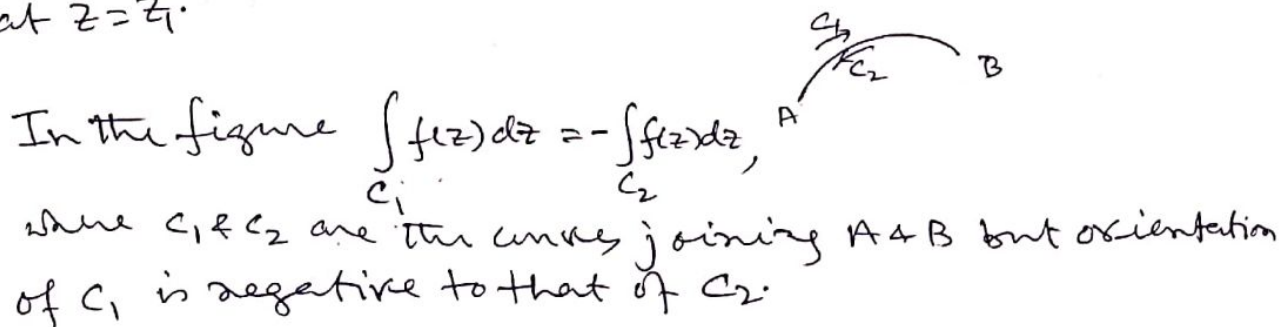 at z = z₁.
C₁
C₂
B
A
In the figure ∫_{C₁} f(z) dz = - ∫_{C₂} f(z) dz,
where C₁ & C₂ are the curves joining A & B but orientation
of C₁ is negative to that of C₂.